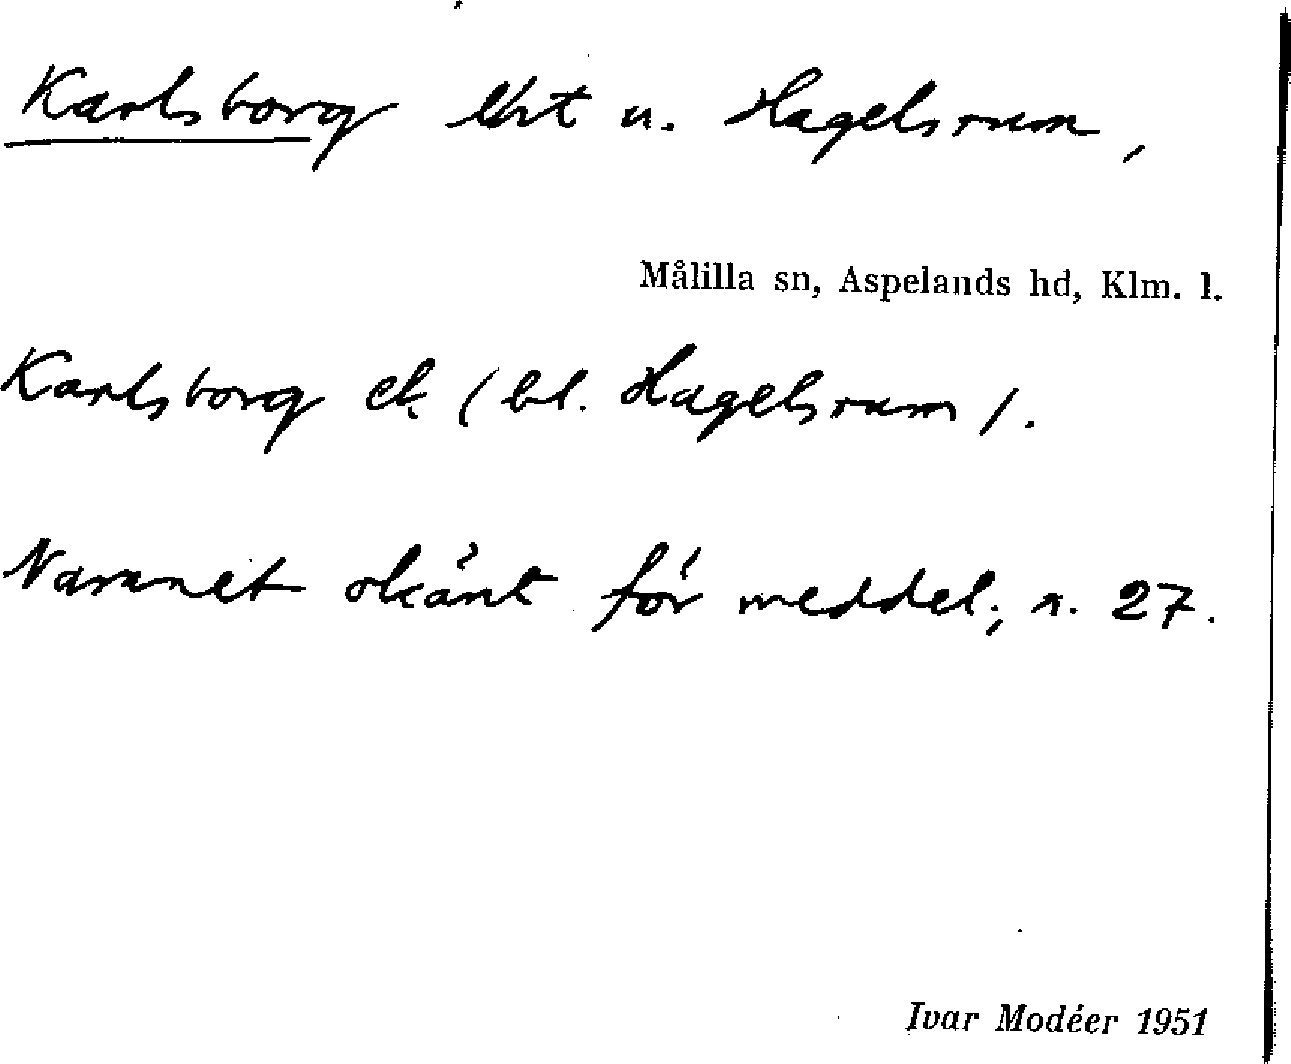 Karlsborg lht u. Hagelsrum,
Målilla sn, Aspelands hd, Klm. l.
Karlsborg ek (bl. Hagelsrum).
Namnet okänt för meddel.; n. 27.
Ivar Modéer 1951